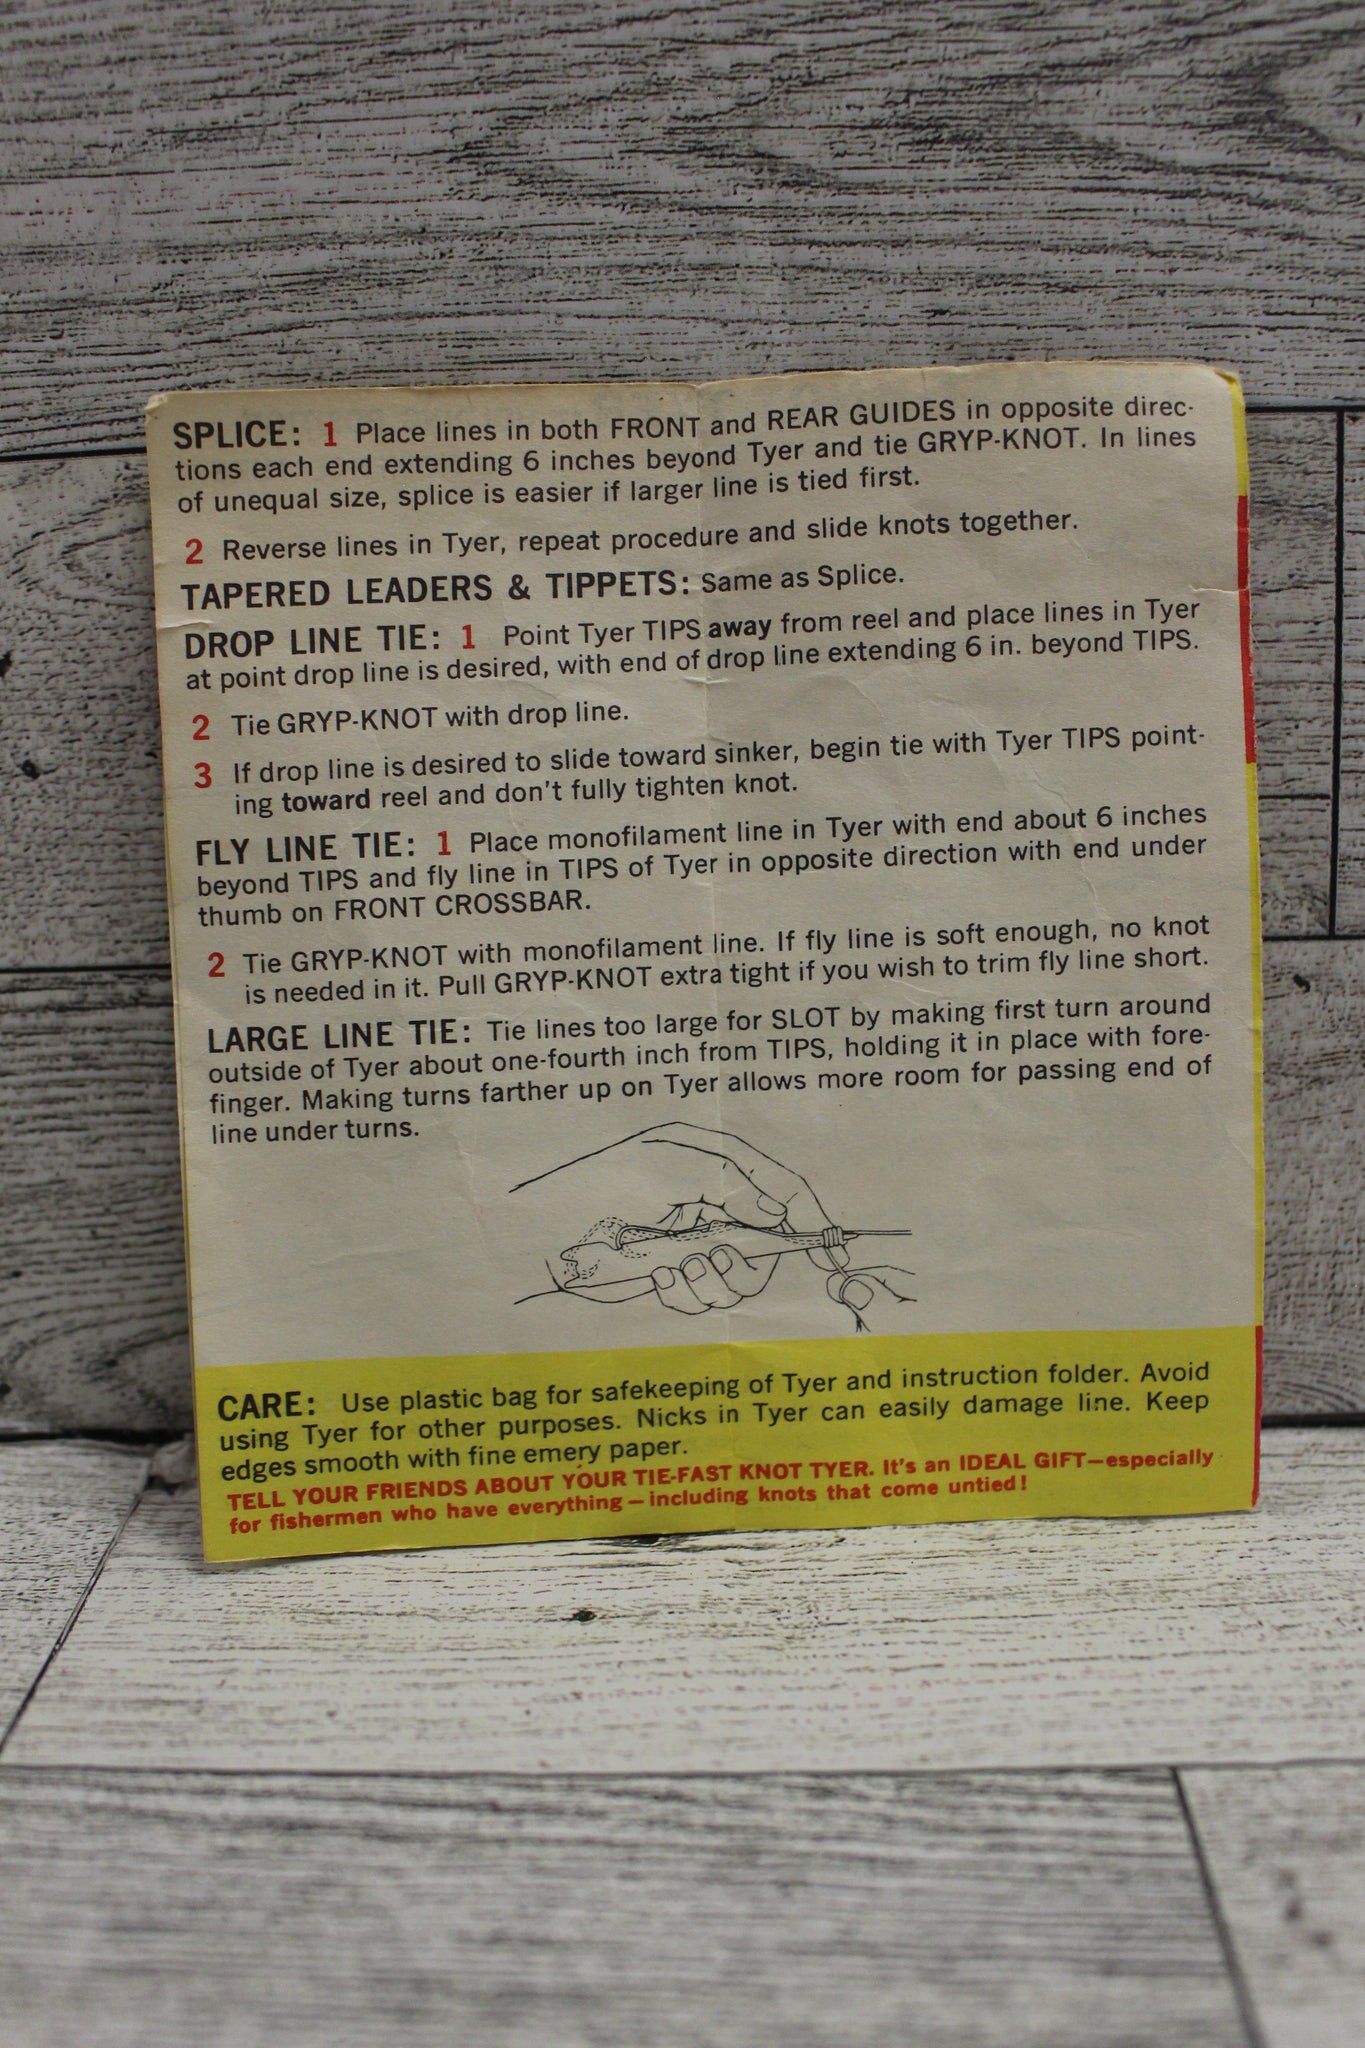 SPLICE: 1 Place lines in both FRONT and REAR GUIDES in opposite direc-
tions each end extending 6 inches beyond Tyer and tie GRYP-KNOT. In lines
of unequal size, splice is easier if larger line is tied first.
2 Reverse lines in Tyer, repeat procedure and slide knots together.
TAPERED LEADERS & TIPPETS: Same as Splice.
DROP LINE TIE: 1 Point Tyer TIPS away from reel and place lines in Tyer
at point drop line is desired, with end of drop line extending 6 in. beyond TIPS.
2 Tie GRYP-KNOT with drop line.
3 If drop line is desired to slide toward sinker, begin tie with Tyer TIPS point-
ing toward reel and don't fully tighten knot.
FLY LINE TIE: 1 Place monofilament line in Tyer with end about 6 inches
beyond TIPS and fly line in TIPS of Tyer in opposite direction with end under
thumb on FRONT CROSSBAR.
2 Tie GRYP-KNOT with monofilament line. If fly line is soft enough, no knot
is needed in it. Pull GRYP-KNOT extra tight if you wish to trim fly line short.
LARGE LINE TIE: Tie lines too large for SLOT by making first turn around
outside of Tyer about one-fourth inch from TIPS, holding it in place with fore-
finger. Making turns farther up on Tyer allows more room for passing end of
line under turns.
CARE: Use plastic bag for safekeeping of Tyer and instruction folder. Avoid
using Tyer for other purposes. Nicks in Tyer can easily damage line. Keep
edges smooth with fine emery paper.
TELL YOUR FRIENDS ABOUT YOUR TIE-FAST KNOT TYER. It's an IDEAL GIFT—especially
for fishermen who have everything—including knots that come untied!